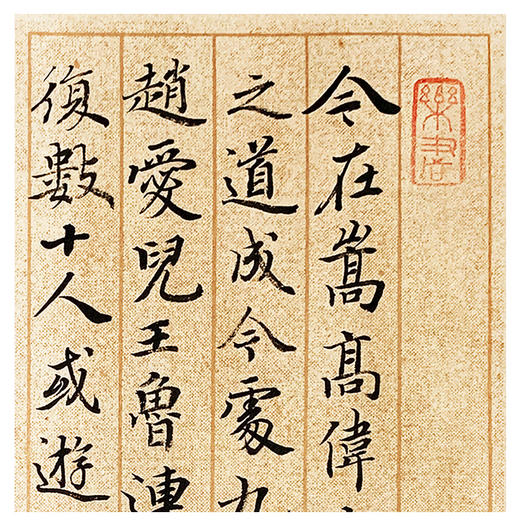 今在嵩高偉
之道成今處九
趙愛兒王魯連
復數十人或遊